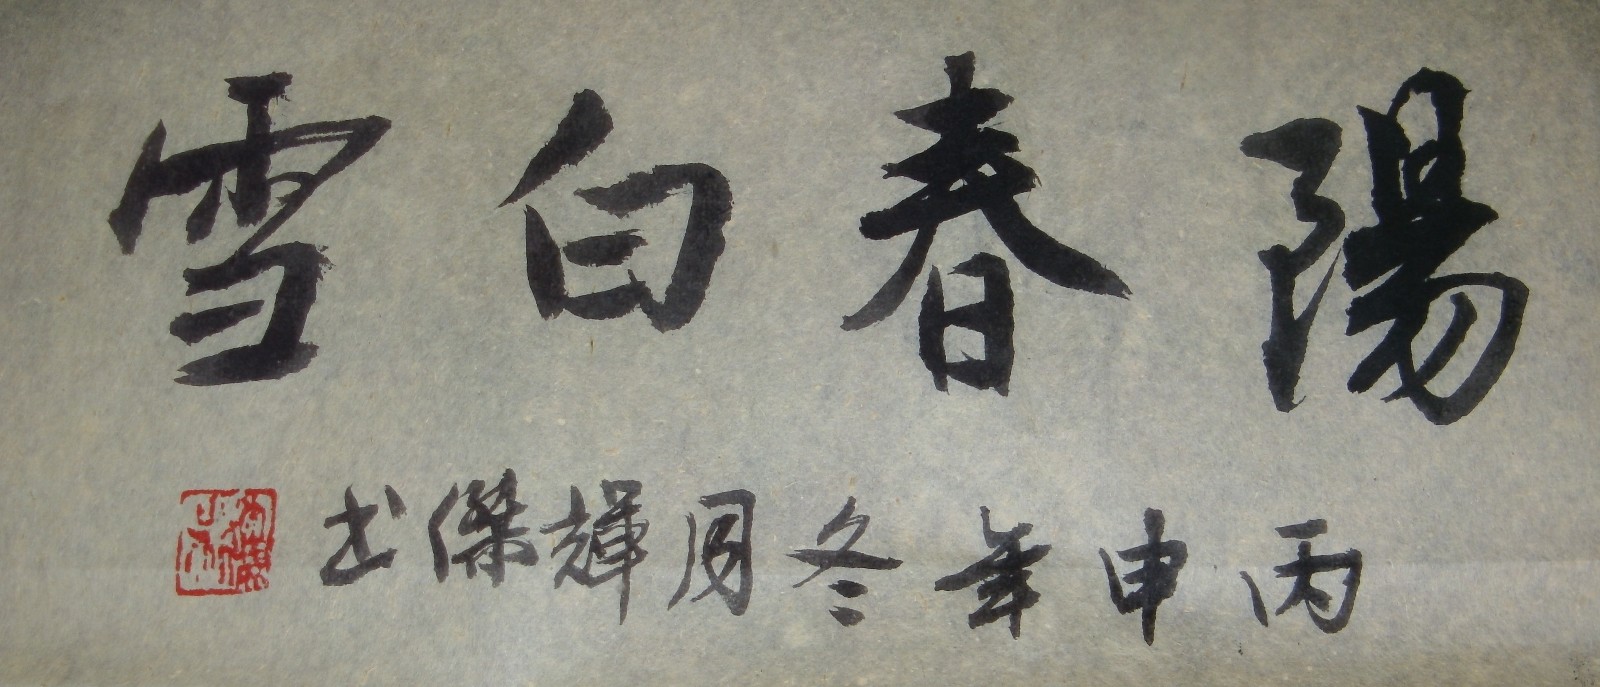 陽春白雪
丙申年冬周輝傑书